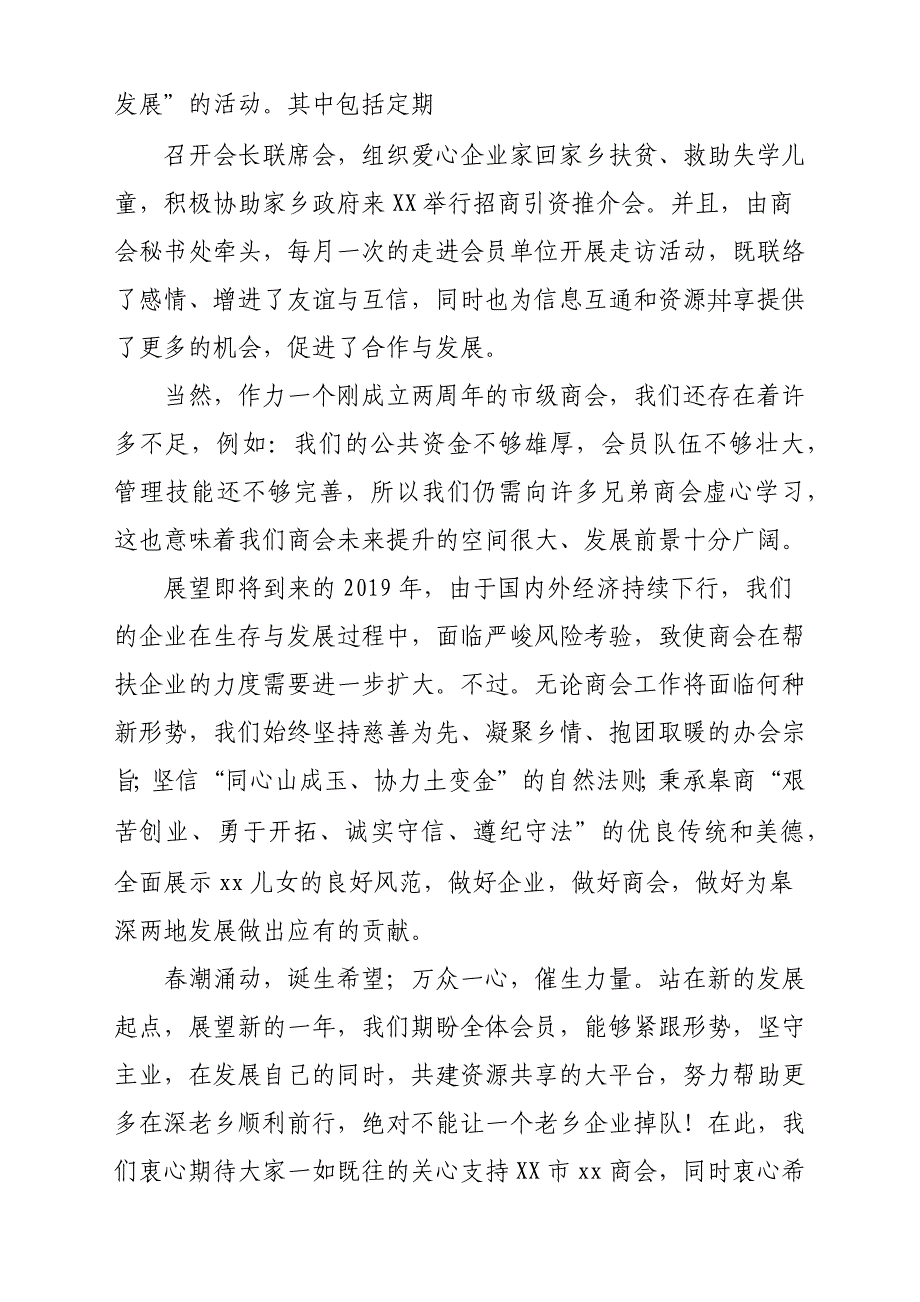 发展”的活动。其中包括定期
召开会长联席会，组织爱心企业家回家乡扶贫、救助失学儿
童，积极协助家乡政府来 XX 举行招商引资推介会。并且，由商
会秘书处牵头，每月一次的走进会员单位开展走访活动，既联络
了感情、增进了友谊与互信，同时也为信息互通和资源共享提供
了更多的机会，促进了合作与发展。
当然，作力一个刚成立两周年的市级商会，我们还存在着许
多不足，例如：我们的公共资金不够雄厚，会员队伍不够壮大，
管理技能还不够完善，所以我们仍需向许多兄弟商会虚心学习，
这也意味着我们商会未来提升的空间很大、发展前景十分广阔。
展望即将到来的 2019 年，由于国内外经济持续下行，我们
的企业在生存与发展过程中，面临严峻风险考验，致使商会在帮
扶企业的力度需要进一步扩大。不过。无论商会工作将面临何种
新形势，我们始终坚持慈善为先、凝聚乡情、抱团取暖的办会宗
旨；坚信“同心山成玉、协力土变金”的自然法则；秉承皋商“艰
苦创业、勇于开拓、诚实守信、遵纪守法”的优良传统和美德，
全面展示 xx 儿女的良好风范，做好企业，做好商会，做好为皋
深两地发展做出应有的贡献。
春潮涌动，诞生希望；万众一心，催生力量。站在新的发展
起点，展望新的一年，我们期盼全体会员，能够紧跟形势，坚守
主业，在发展自己的同时，共建资源共享的大平台，努力帮助更
多在深老乡顺利前行，绝对不能让一个老乡企业掉队！在此，我
们衷心期待大家一如既往的关心支持 XX 市 xx 商会，同时衷心希